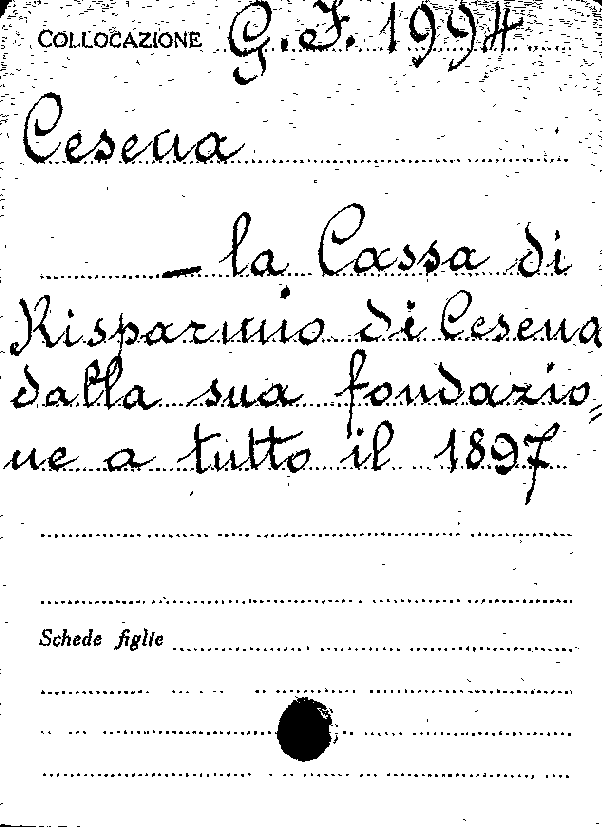 COLLOCAZIONE G.I. 1994
Cesena
- la Cassa di
Risparmio di Cesena
dalla sua fondazio=
ne a tutto il 1897
Schede figlie